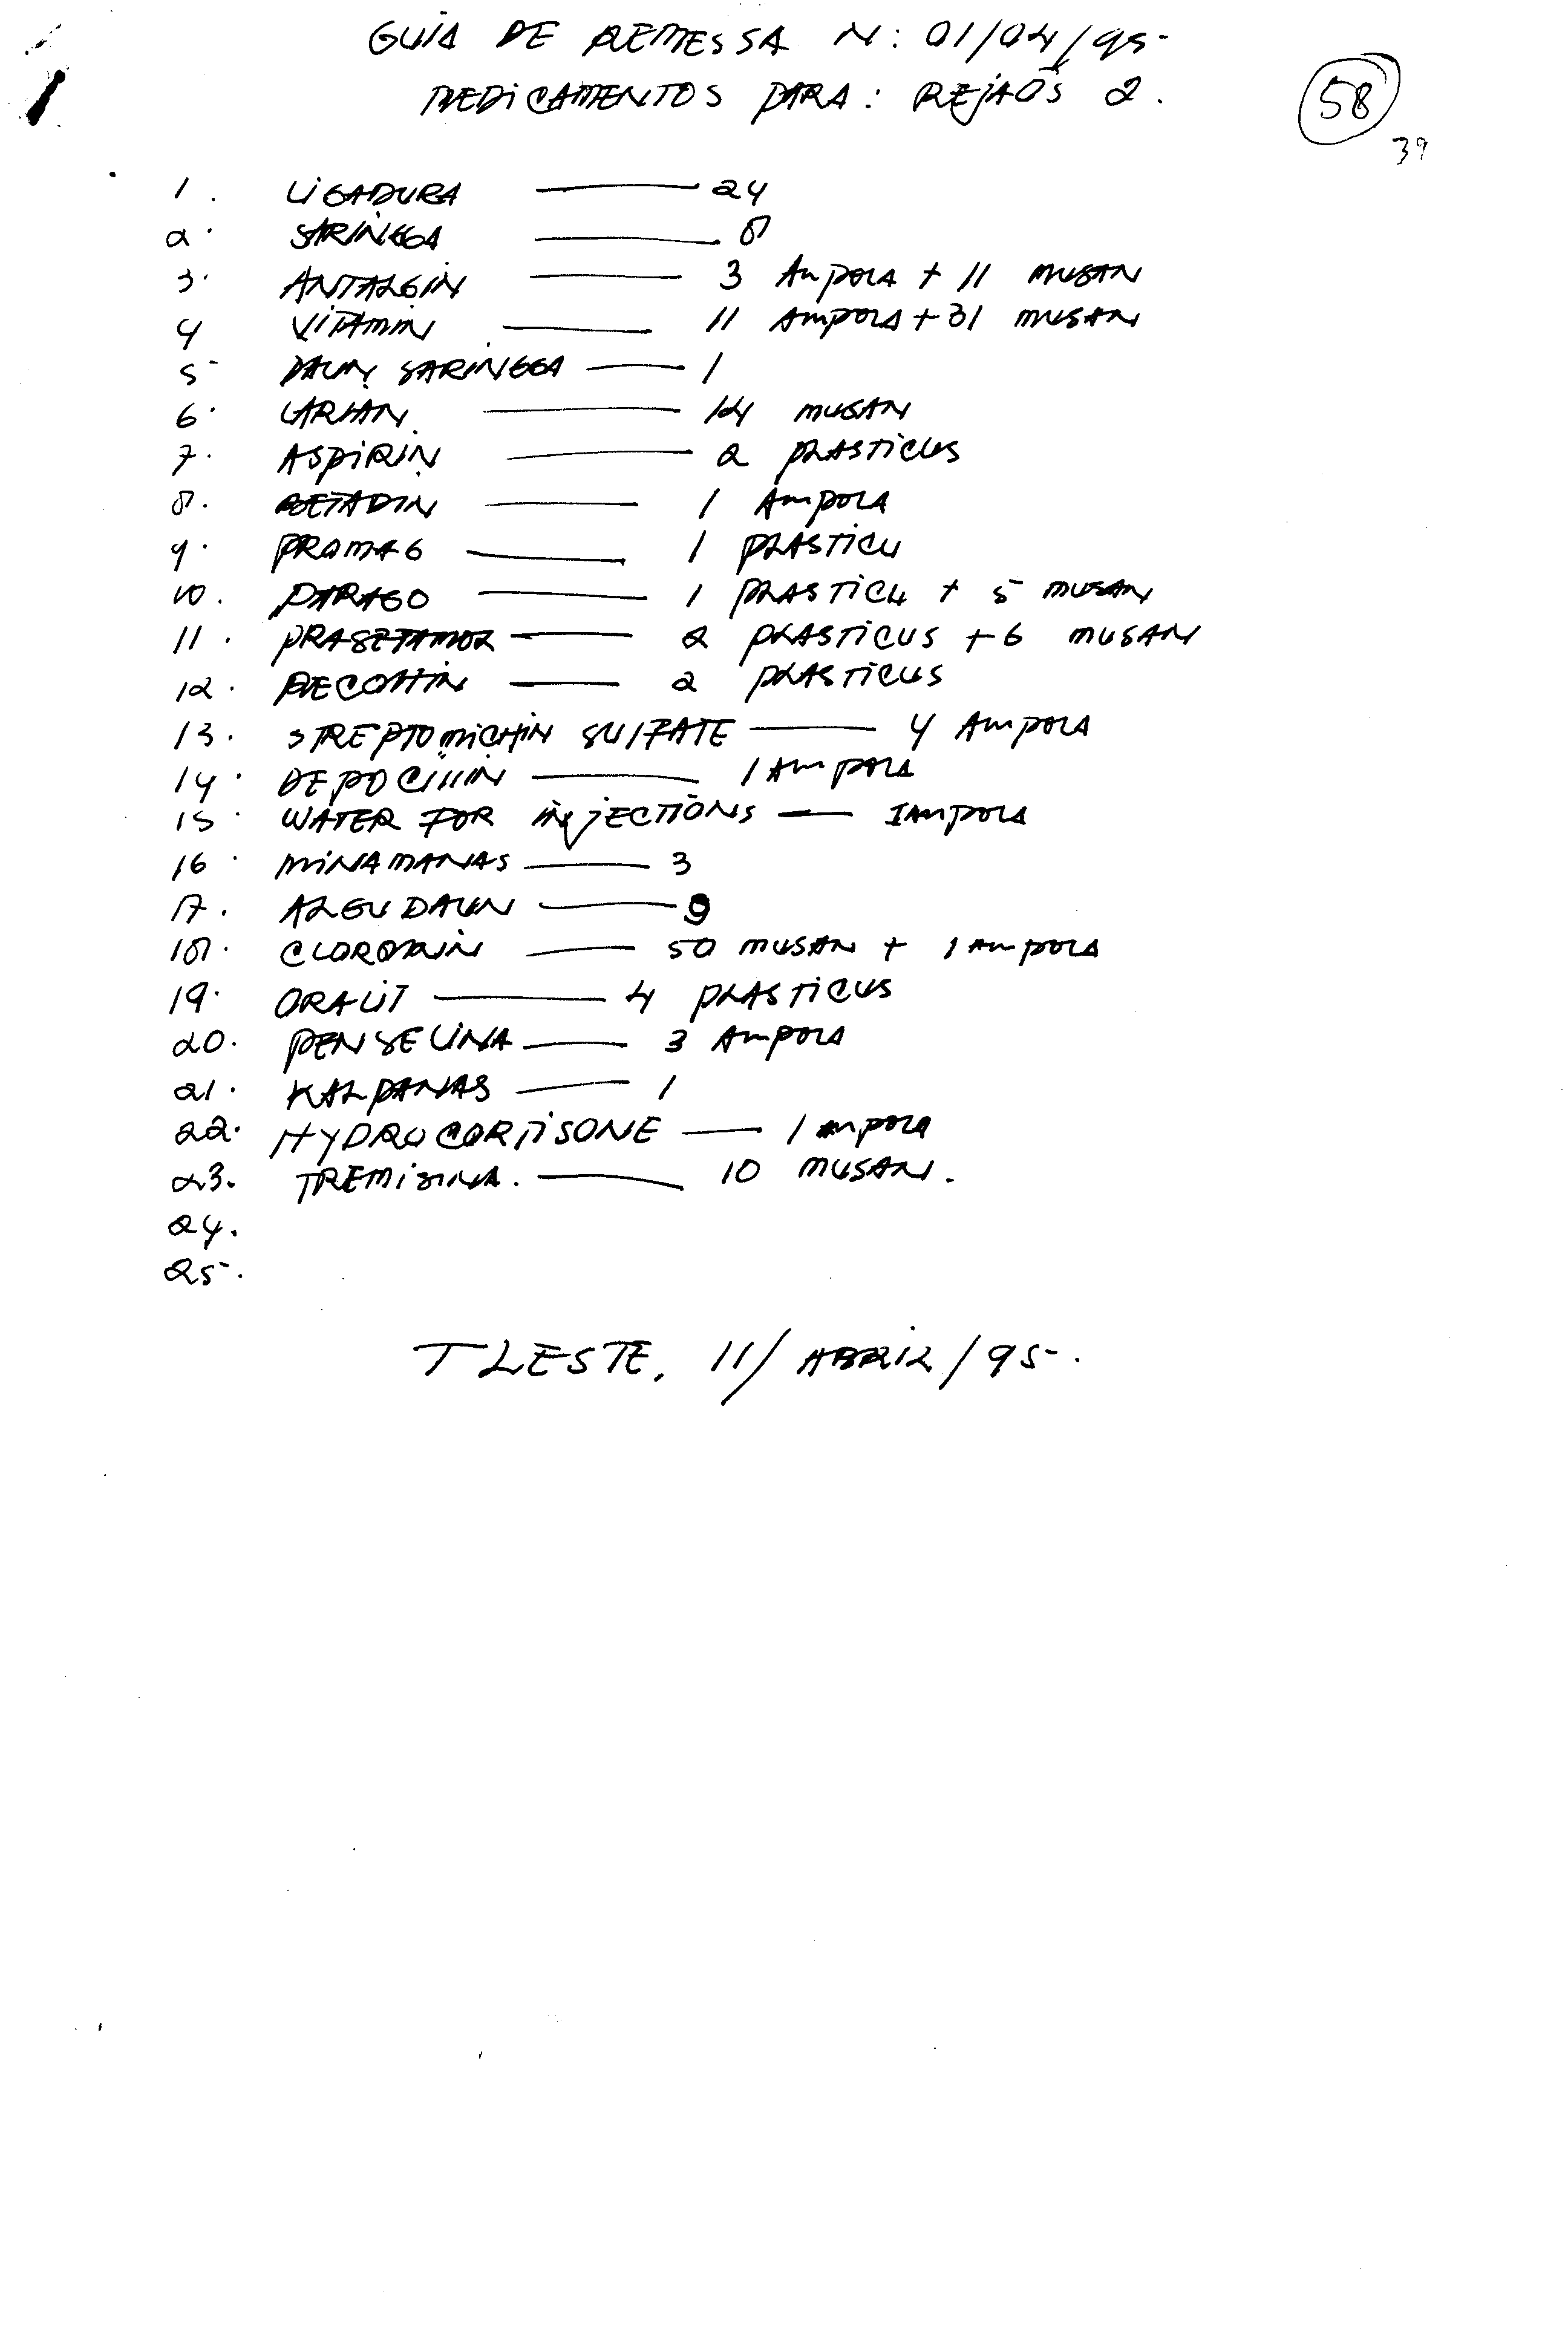 GUIA DE REMESSA N: 01/04/95
MEDICAMENTOS PARA: REJAÕS 2.
58
39
1. LIGADURA —— 24
2. SARINGGA —— 8
3. ANTALGIN —— 3 AMPOLA + 11 MUSAN
4 VITAMIN —— 11 AMPOLA + 31 MUSAN
5 DAUN SARINGGA —— 1
6. LARIAN —— 14 MUSAN
7. ASPIRIN —— 2 PLASTICUS
8. BETADIN —— 1 AMPOLA
9. PROMAG —— 1 PLASTICU
10. PARAGO —— 1 PLASTICU + 5 MUSAN
11. PRASETAMOL —— 2 PLASTICUS + 6 MUSAN
12. —— 2 PLASTICUS
13. STREPTOMICHIN SULFATE —— 4 AMPOLA
14. DEPOCILLIN —— 1 AMPOLA
15. WATER FOR INJECTIONS —— 1 AMPOLA
16. MINAMANAS —— 3
17. ALGUDAUN —— 9
18. CLOROKIN —— 50 MUSAN + 1 AMPOLA
19. ORALIT —— 4 PLASTICUS
20. PENSELINA —— 3 AMPOLA
21. KALPANAS —— 1
22. HYDROCORTISONE —— 1 AMPOLA
23. TREMISINA. —— 10 MUSAN.
24.
25.
T LESTE, 11/ABRIL/95.